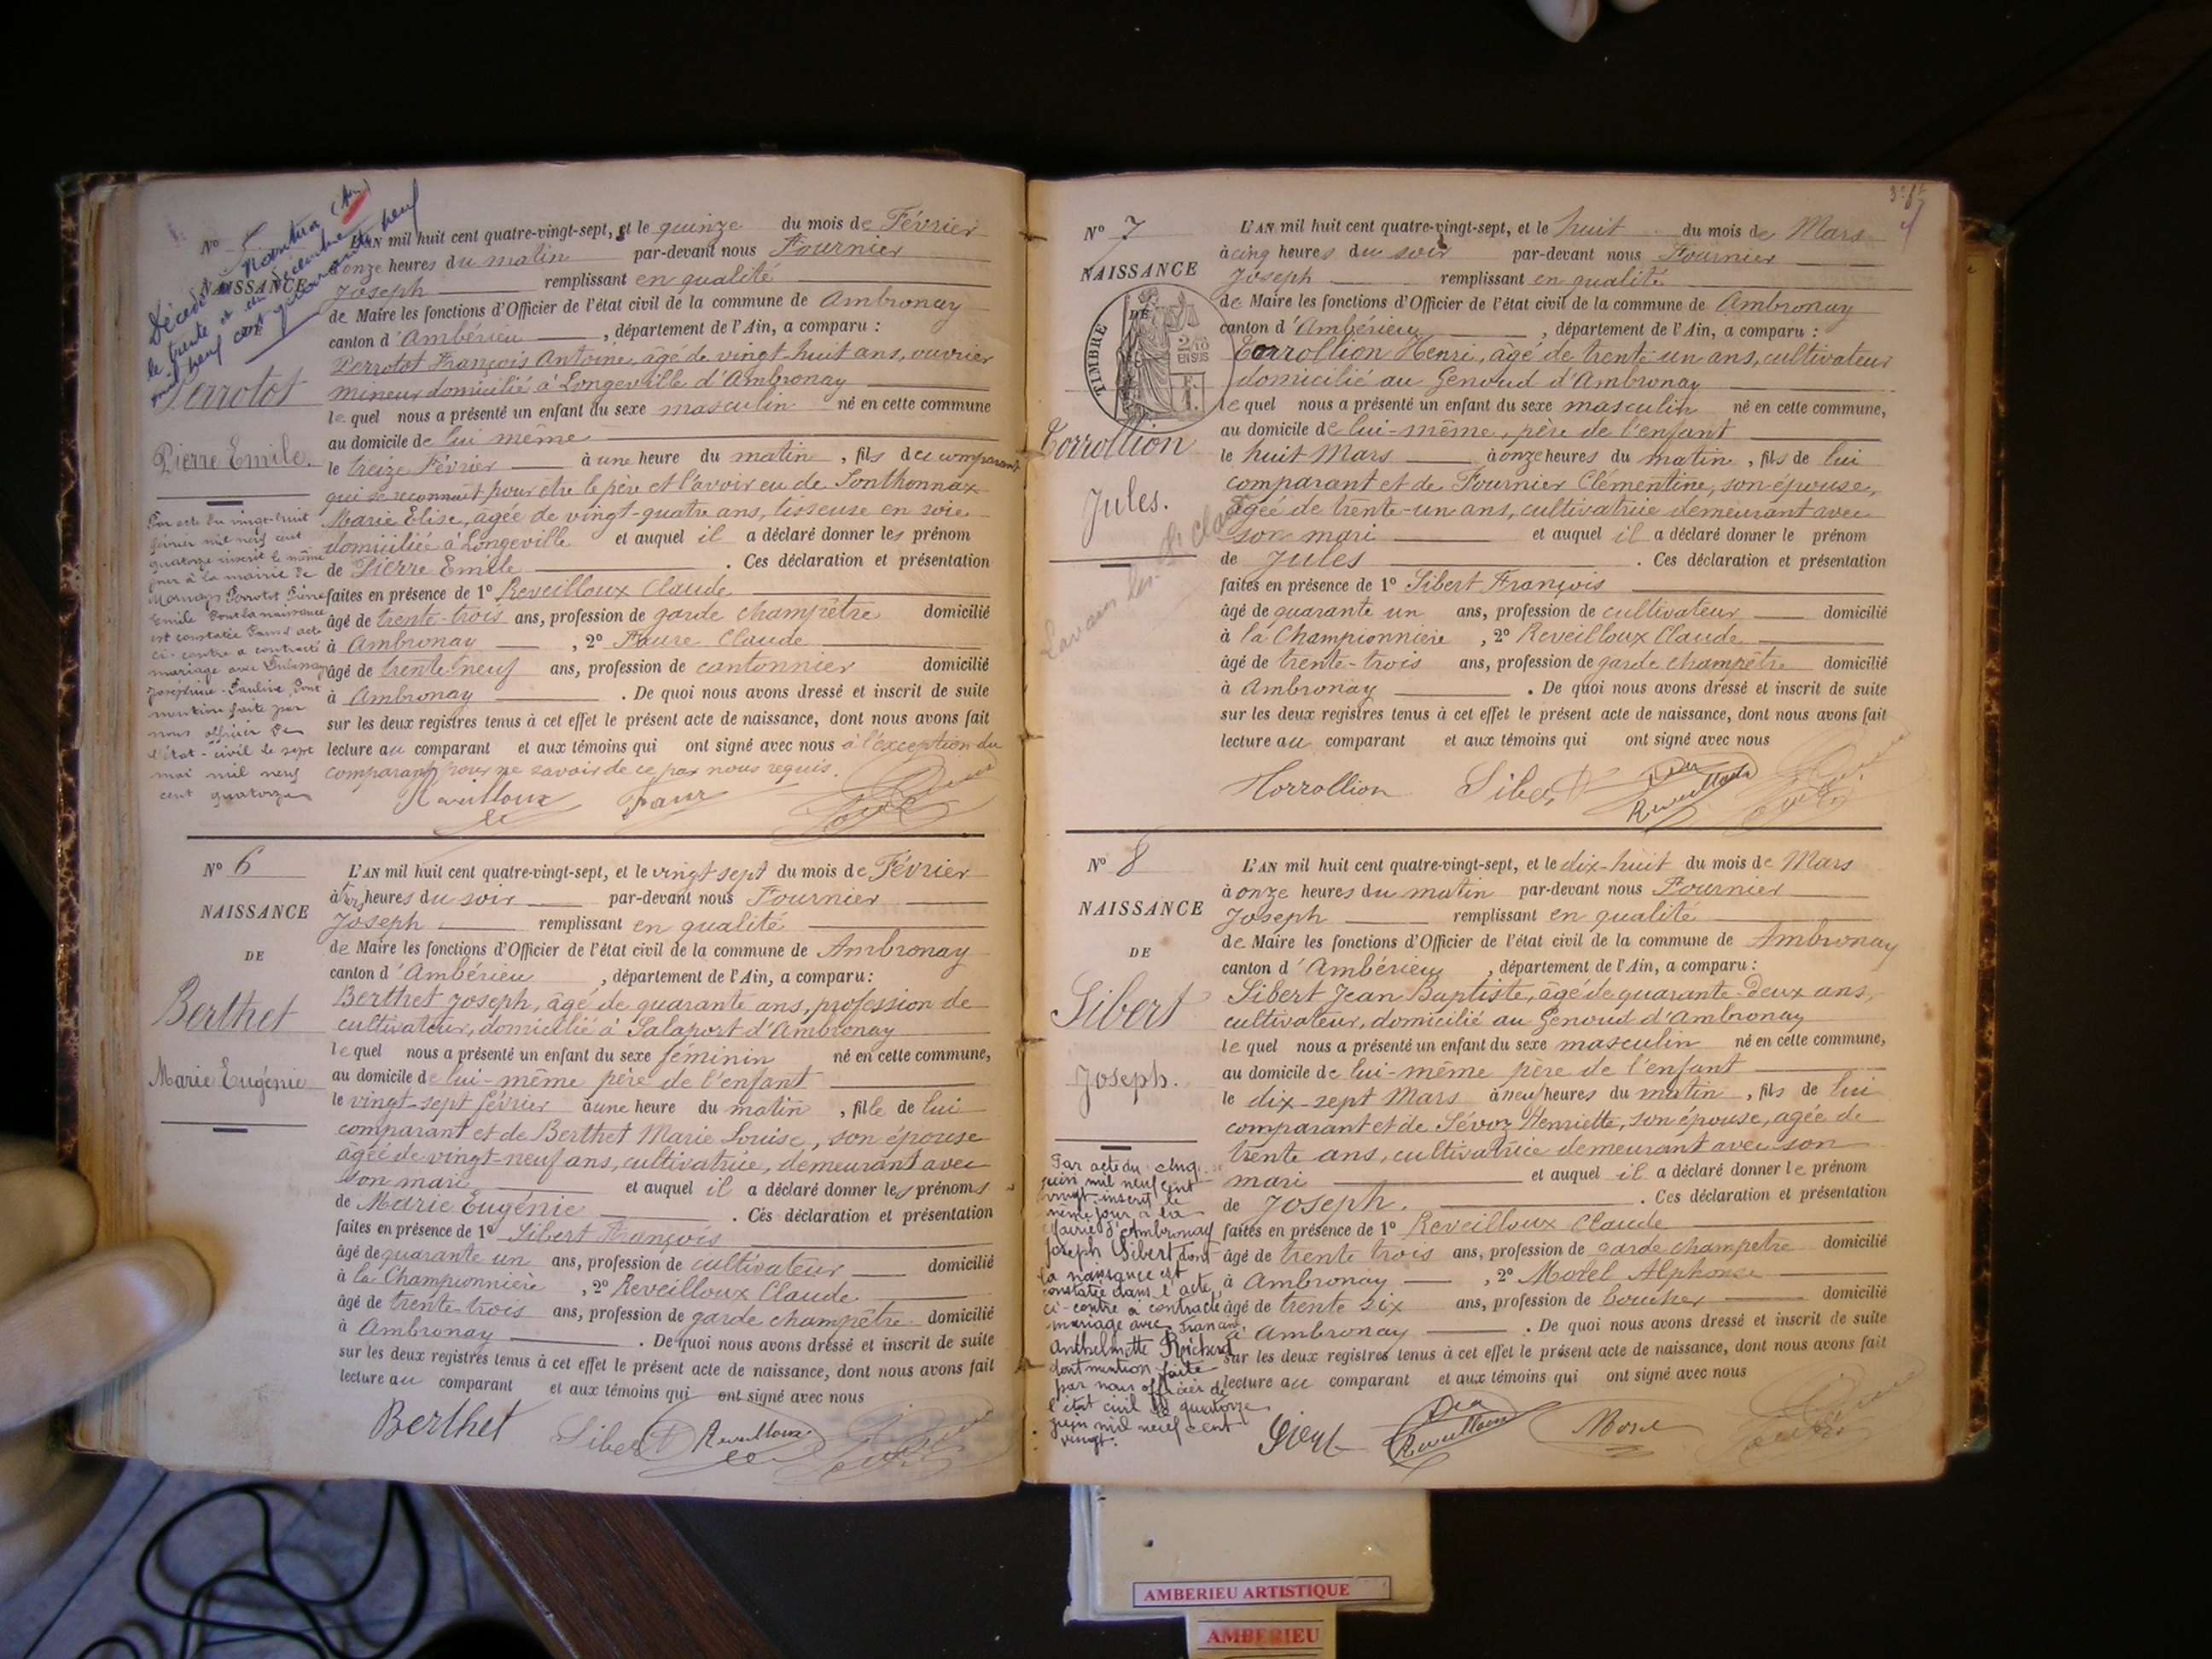 Nº 5
NAISSANCE
Décédé à Nantua (Ain)
le trente et un décembre
mil neuf cent quarante neuf
Perrotot
Pierre Emile.
Par acte du vingt-huit
février mil neuf cent
quatorze inscrit le même
jour à la mairie de
Perrotot Pierre
Emile dont la naissance
est constatée dans l'acte
ci-contre a contracté
mariage avec
Joséphine-Pauline, dont
mention faite par
nous officier de
l'état-civil le sept
mai mil neuf
cent quatorze
L'AN mil huit cent quatre-vingt-sept, et le quinze du mois de Février
à onze heures du matin par-devant nous Fournier
Joseph remplissant en qualité
de Maire les fonctions d'Officier de l'état civil de la commune de Ambronay
canton d'Ambérieu , département de l'Ain, a comparu :
Perrotot François Antoine, âgé de vingt-huit ans, ouvrier
mineur domicilié à Longeville d'Ambronay
lequel nous a présenté un enfant du sexe masculin né en cette commune
au domicile de lui même
le treize Février à une heure du matin , fils du comparant
qui se reconnait pour être le père et l'avoir eu de Sonthonnax
Marie Elise, âgée de vingt-quatre ans, tisseuse en soie
domiciliée à Longeville et auquel il a déclaré donner les prénom
de Pierre Emile . Ces déclaration et présentation
faites en présence de 1º Reveilloux Claude
âgé de trente-trois ans, profession de garde champêtre domicilié
à Ambronay , 2º Faure Claude
âgé de trente neuf ans, profession de cantonnier domicilié
à Ambronay . De quoi nous avons dressé et inscrit de suite
sur les deux registres tenus à cet effet le présent acte de naissance, dont nous avons fait
lecture au comparant et aux témoins qui ont signé avec nous à l'exception du
comparant pour ne savoir de ce par nous requis.
Reveilloux Faure
Nº 6
NAISSANCE
DE
Berthet
Marie Eugénie
L'AN mil huit cent quatre-vingt-sept, et le vingt sept du mois de Février
à trois heures du soir par-devant nous Fournier
Joseph remplissant en qualité
de Maire les fonctions d'Officier de l'état civil de la commune de Ambronay
canton d'Ambérieu , département de l'Ain, a comparu :
Berthet Joseph, âgé de quarante ans, profession de
cultivateur, domicilié à Salaport d'Ambronay
lequel nous a présenté un enfant du sexe féminin né en cette commune,
au domicile de lui-même père de l'enfant
le vingt-sept février à une heure du matin , fille de lui
comparant et de Berthet Marie Louise, son épouse
âgée de vingt-neuf ans, cultivatrice, demeurant avec
son mari et auquel il a déclaré donner les prénoms
de Marie Eugénie . Ces déclaration et présentation
faites en présence de 1º Sibert François
âgé de quarante un ans, profession de cultivateur domicilié
à la Championnière , 2º Reveilloux Claude
âgé de trente-trois ans, profession de garde champêtre domicilié
à Ambronay . De quoi nous avons dressé et inscrit de suite
sur les deux registres tenus à cet effet le présent acte de naissance, dont nous avons fait
lecture au comparant et aux témoins qui ont signé avec nous
Berthet Sibert Reveilloux
Nº 7
NAISSANCE
DE
TIMBRE
2/10
EN SUS
Torrollion
Jules.
L'AN mil huit cent quatre-vingt-sept, et le huit du mois de Mars
à cinq heures du soir par-devant nous Fournier
Joseph remplissant en qualité
de Maire les fonctions d'Officier de l'état civil de la commune de Ambronay
canton d'Ambérieu , département de l'Ain, a comparu :
Torrollion Henri, âgé de trente-un ans, cultivateur
domicilié au Genoud d'Ambronay
lequel nous a présenté un enfant du sexe masculin né en cette commune,
au domicile de lui-même, père de l'enfant
le huit Mars à onze heures du matin , fils de lui
comparant et de Fournier Clémentine, son épouse,
âgée de trente-un ans, cultivatrice demeurant avec
son mari et auquel il a déclaré donner le prénom
de Jules . Ces déclaration et présentation
faites en présence de 1º Sibert François
âgé de quarante un ans, profession de cultivateur domicilié
à la Championnière , 2º Reveilloux Claude
âgé de trente-trois ans, profession de garde champêtre domicilié
à Ambronay . De quoi nous avons dressé et inscrit de suite
sur les deux registres tenus à cet effet le présent acte de naissance, dont nous avons fait
lecture au comparant et aux témoins qui ont signé avec nous
Torrollion Sibert Reveilloux
Nº 8
NAISSANCE
DE
Sibert
Joseph.
Par acte du cinq
juin mil neuf cent
vingt inscrit le
même jour à la
Mairie d'Ambronay
Joseph Sibert dont
la naissance est
constatée dans l'acte
ci-contre a contracté
mariage avec
Anthelmette Richerd
dont mention faite
par nous officier de
l'état civil le quatorze
juin mil neuf cent
vingt.
L'AN mil huit cent quatre-vingt-sept, et le dix-huit du mois de Mars
à onze heures du matin par-devant nous Fournier
Joseph remplissant en qualité
de Maire les fonctions d'Officier de l'état civil de la commune de Ambronay
canton d'Ambérieu , département de l'Ain, a comparu :
Sibert Jean Baptiste, âgé de quarante-deux ans,
cultivateur, domicilié au Genoud d'Ambronay
lequel nous a présenté un enfant du sexe masculin né en cette commune,
au domicile de lui-même père de l'enfant
le dix-sept Mars à neuf heures du matin , fils de lui
comparant et de Sévoz Henriette, son épouse, agée de
trente ans, cultivatrice demeurant avec son
mari et auquel il a déclaré donner le prénom
de Joseph. . Ces déclaration et présentation
faites en présence de 1º Reveilloux Claude
âgé de trente trois ans, profession de garde champetre domicilié
à Ambronay , 2º Morel Alphonse
âgé de trente six ans, profession de boucher domicilié
à Ambronay . De quoi nous avons dressé et inscrit de suite
sur les deux registres tenus à cet effet le présent acte de naissance, dont nous avons fait
lecture au comparant et aux témoins qui ont signé avec nous
Reveilloux Morel
AMBERIEU ARTISTIQUE
AMBERIEU